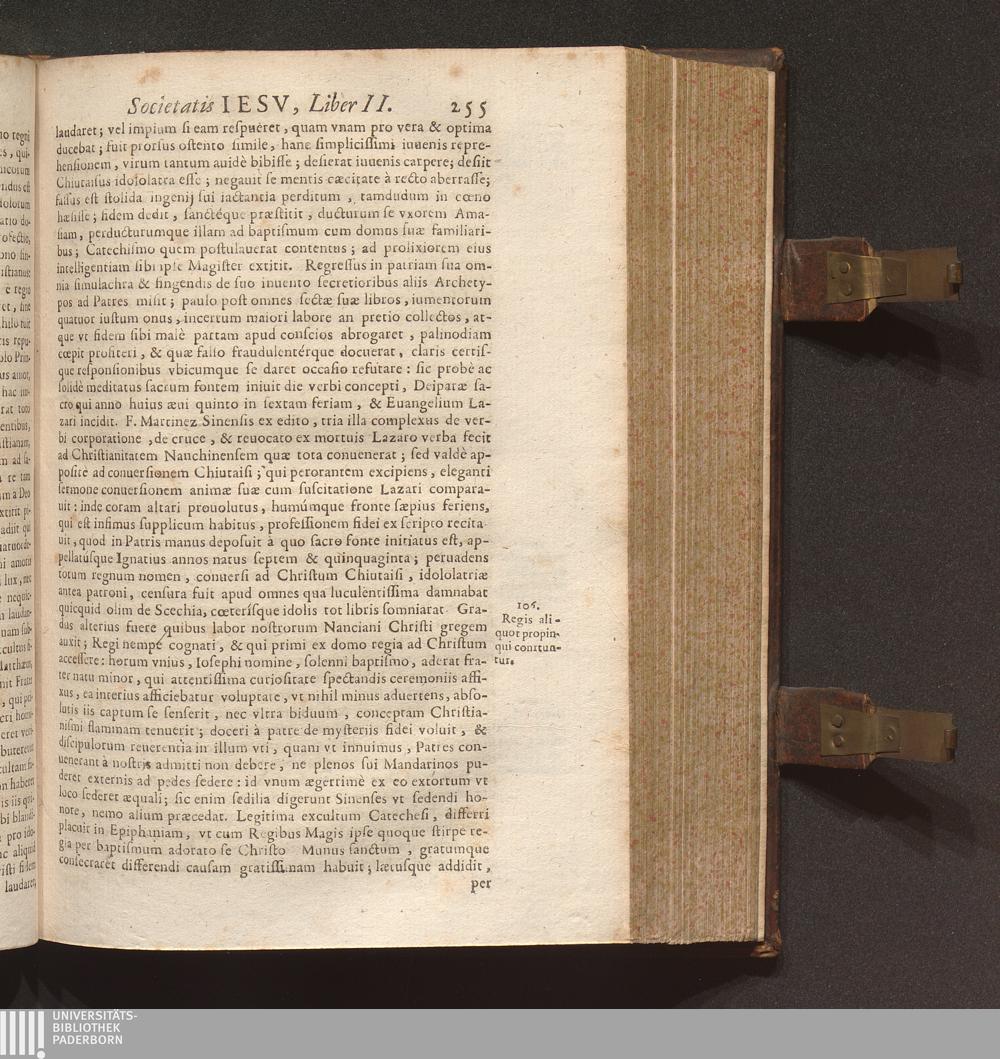 Societatis IESV, Liber II. 255
laudaret; vel impium si eam respueret, quam vnam pro vera & optima
ducebat; fuit prorsus ostento simile, hanc simplicissimi iuuenis repre-
hensionem, virum tantum auidè bibisse; desierat iuuenis carpere; desiit
Chiutaisus idololatra esse; negauit se mentis cæcitate à recto aberrasse;
fassus est stolida ingenij sui iactantia perditum, tamdudum in cœno
hæsisse; fidem dedit, sanctéque præstitit, ducturum se vxorem Ama-
siam, perducturumque illam ad baptismum cum domus suæ familiari-
bus; Catechismo quem postulauerat contentus; ad prolixiorem eius
intelligentiam sibi ipse Magister extitit. Regressus in patriam sua om-
nia simulachra & fingendis de suo inuento secretioribus aliis Archety-
pos ad Patres misit; paulo post omnes sectæ suæ libros, iumentorum
quatuor iustum onus, incertum maiori labore an pretio collectos, at-
que vt fidem sibi malè partam apud conscios abrogaret, palinodiam
cœpit profiteri, & quæ falso fraudulentérque docuerat, claris certis-
que responsionibus vbicumque se daret occasio refutare: sic probè ac
solidè meditatus sacrum fontem iniuit die verbi concepti, Deiparæ sa-
cro qui anno huius æui quinto in sextam feriam, & Euangelium La-
zari incidit. F. Martinez Sinensis ex edito, tria illa complexus de ver-
bi corporatione, de cruce, & reuocato ex mortuis Lazaro verba fecit
ad Christianitatem Nanchinensem quæ tota conuenerat; sed valdè ap-
positè ad conuersionem Chiutaisi; qui perorantem excipiens, eleganti
sermone conuersionem animæ suæ cum suscitatione Lazari compara-
uit: inde coram altari prouolutus, humúmque fronte sæpius feriens,
qui est infimus supplicum habitus, professionem fidei ex scripto recita-
uit, quod in Patris manus deposuit à quo sacro fonte initiatus est, ap-
pellatúsque Ignatius annos natus septem & quinquaginta; peruadens
totum regnum nomen, conuersi ad Christum Chiutaisi, idololatriæ
antea patroni, censura fuit apud omnes qua luculentissima damnabat
quicquid olim de Scechia, cœterísque idolis tot libris somniarat. Gra-
dus alterius fuere quibus labor nostrorum Nanciani Christi gregem
auxit; Regi nempe cognati, & qui primi ex domo regia ad Christum
accessere: horum vnius, Iosephi nomine, solenni baptismo, aderat fra-
ter natu minor, qui attentissima curiositate spectandis ceremoniis affi-
xus, ea interius afficiebatur voluptate, vt nihil minus aduertens, abso-
lutis iis captum se senserit, nec vltra biduum, conceptam Christia-
nismi flammam tenuerit; doceri à patre de mysteriis fidei voluit, &
discipulorum reuerentia in illum vti, quam vt innuimus, Patres con-
uenerant à nostris admitti non debere, ne plenos sui Mandarinos pu-
deret externis ad pedes sedere: id vnum ægerrimè ex eo extortum vt
loco sederet æquali; sic enim sedilia digerunt Sinenses vt sedendi ho-
nore, nemo alium præcedat. Legitima excultum Catechesi, differri
placuit in Epiphaniam, vt cum Regibus Magis ipse quoque stirpe re-
gia per baptismum adorato se Christo Munus sanctum, gratumque
consecraret differendi causam gratissimam habuit; lætusque addidit,
per
106.
Regis ali-
quot propin-
qui conuun-
tur.
UNIVERSITÄTS-
BIBLIOTHEK
PADERBORN